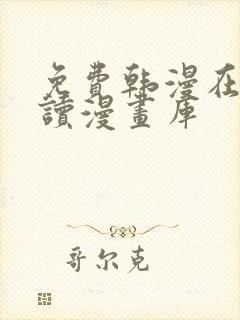 免費韩漫在
讀漫畫库
哥尔克